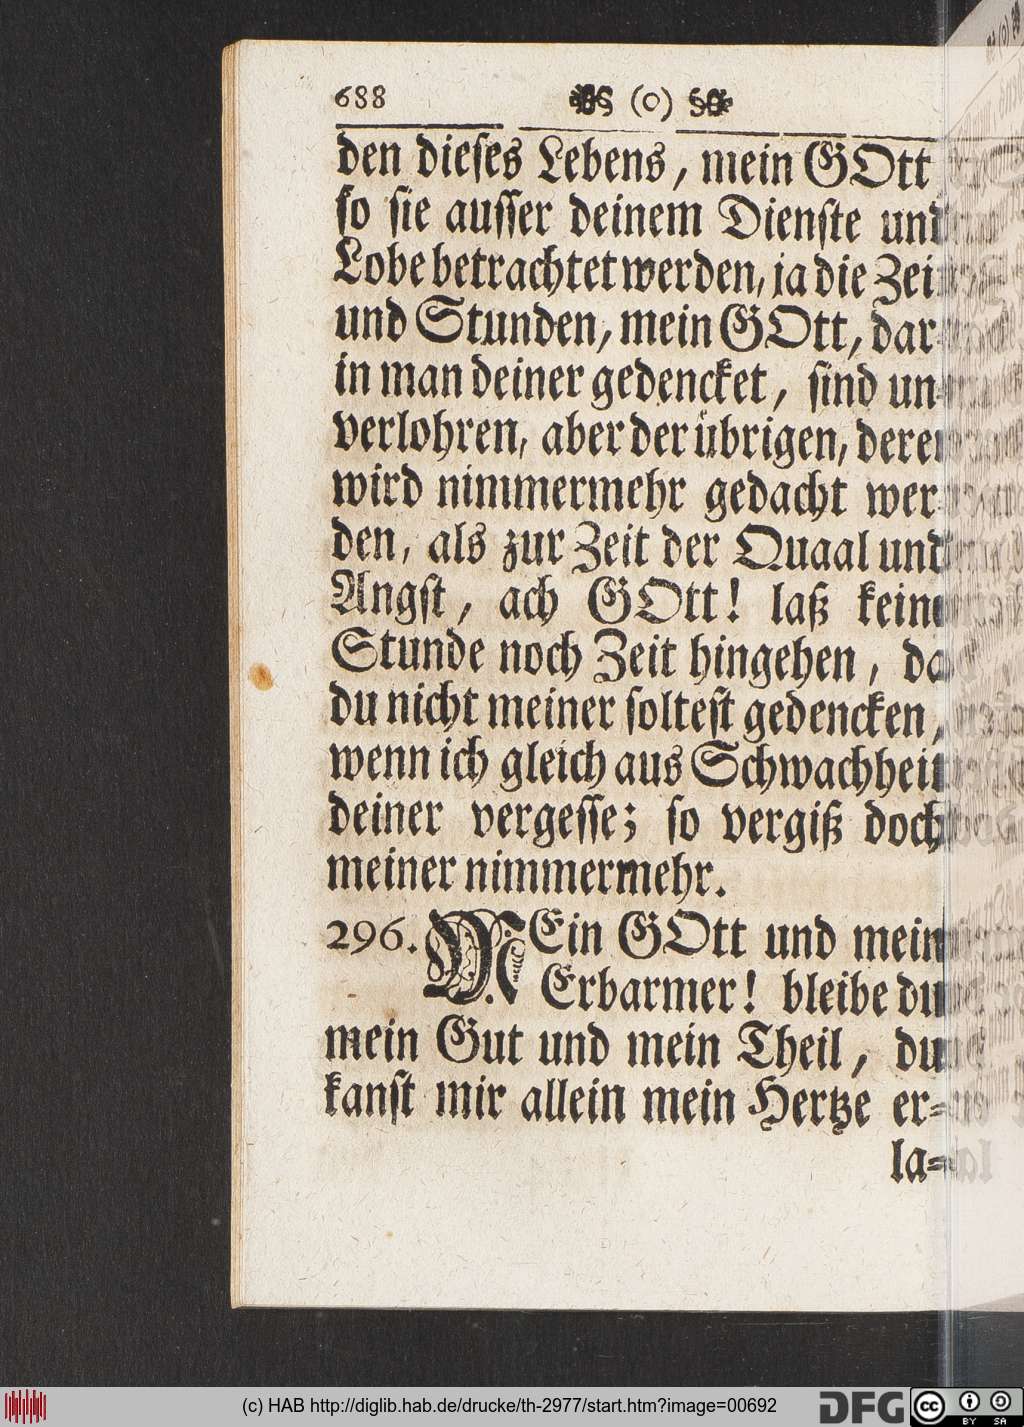 688 (o)
den dieses Lebens, mein GOtt
so sie ausser deinem Dienste und
Lobe betrachtet werden, ja die Zeit
und Stunden, mein GOtt, dar-
in man deiner gedencket, sind un-
verlohren, aber der übrigen, deren
wird nimmermehr gedacht wer-
den, als zur Zeit der Quaal und
Angst, ach GOtt! laß keine
Stunde noch Zeit hingehen, da
du nicht meiner soltest gedencken,
wenn ich gleich aus Schwachheit
deiner vergesse; so vergiß doch
meiner nimmermehr.
296. MEin GOtt und mein
Erbarmer! bleibe du
mein Gut und mein Theil, du
kanst mir allein mein Hertze er-
la-
(c) HAB http://diglib.hab.de/drucke/th-2977/start.htm?image=00692
DFG
cc BY SA